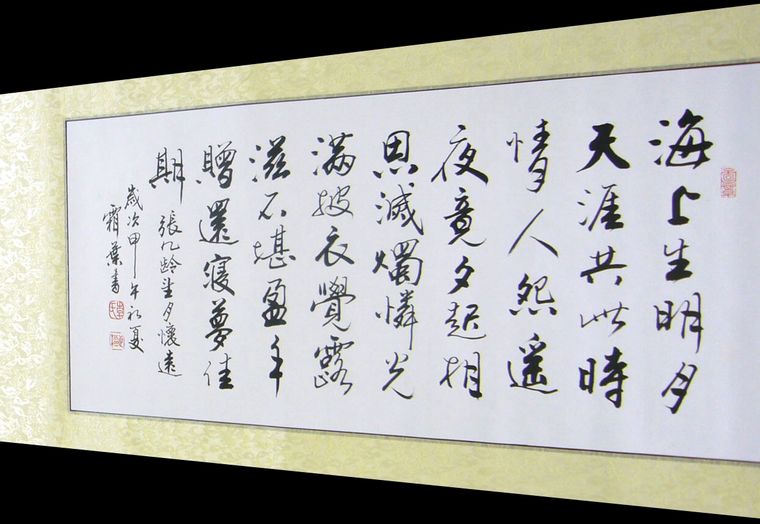 海上生明月
天涯共此時
情人怨遙
夜竟夕起相
思滅燭憐光
滿披衣覺露
滋不堪盈手
贈還寢夢佳
期 張九齡望月懷遠
歲次甲午初夏
霜葉書